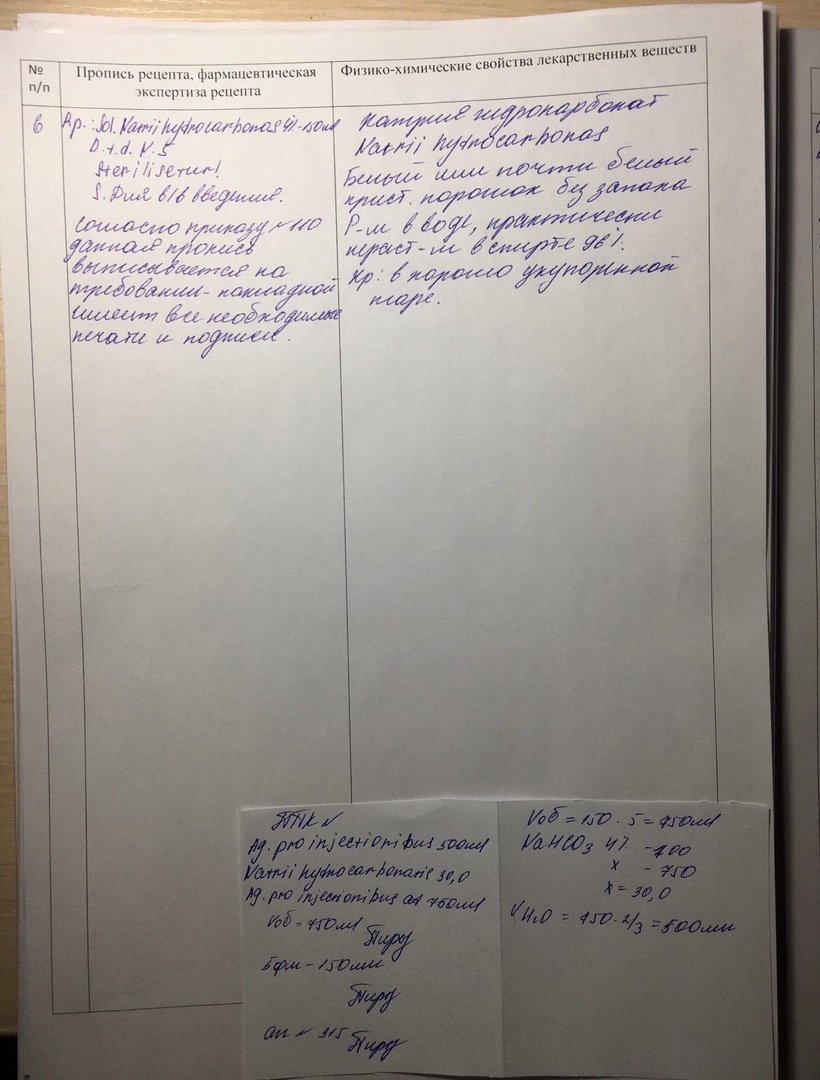 №
п/п
Пропись рецепта, фармацевтическая
экспертиза рецепта
Физико-химические свойства лекарственных веществ
6
Rp.: Sol. Natrii hydrocarbonas 4% - 150ml
D.t.d. N. 5
Sterilisetur!
S. Для в/в введения.
Согласно приказу № 110
данная пропись
выписывается на
требовании-накладной
имеет все необходимые
печати и подписи.
Натрия гидрокарбонат
Natrii hydrocarbonas
Белый или почти белый
крист. порошок без запаха
Р-м в воде, практически
нераст-м в спирте 96%.
Хр: в хорошо укупоренной
таре.
ППК №
Aq. pro injectionibus 500ml
Natrii hydrocarbonatis 30,0
Aq. pro injectionibus ad 750ml
Vоб = 750ml
5фл - 150мл
ан № 315
Vоб = 150 · 5 = 750ml
NaHCO3 4% - 100
x - 750
x = 30,0
VH2O = 750 · 2/3 = 500мл